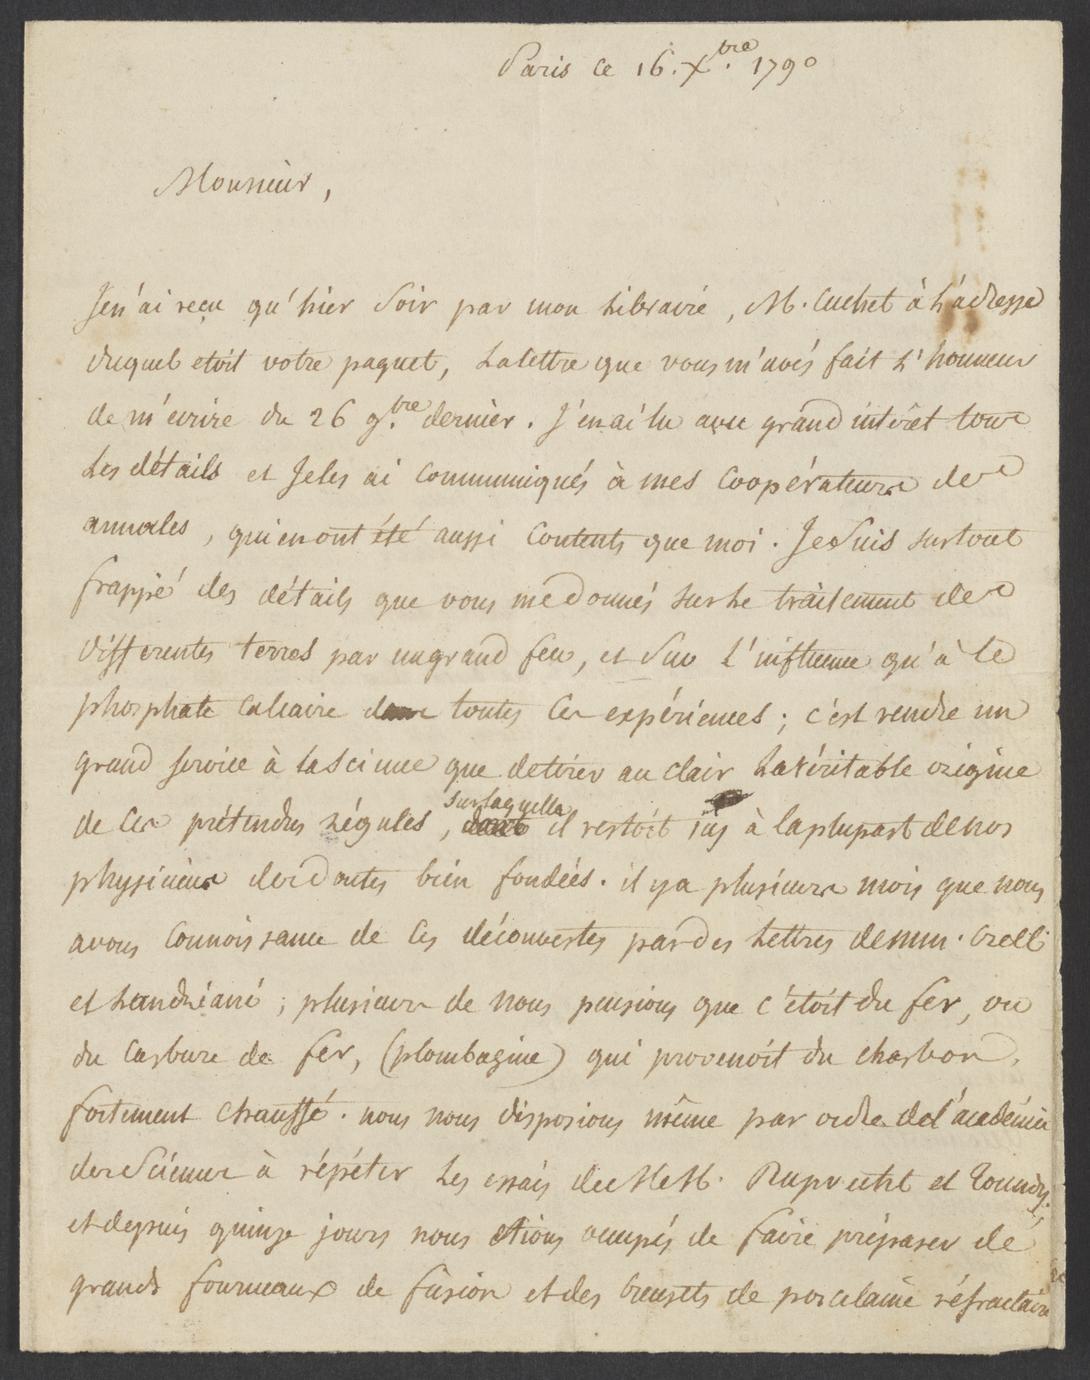 Paris ce 16. Xbre. 1790
Monsieur,
Je n'ai reçu qu'hier soir par mon Libraire, M. Cuchet à L'adresse
duquel etoit votre paquet, La lettre que vous m'avés fait L'honneur
de m'ecrire du 26 9bre. dernier. J'en ai lu avec grand intérêt tous
Les détails et Je les ai communiqués à mes Coopérateurs des
annales, qui en ont été aussi Contents que moi. Je Suis surtout
frappé des détails que vous me donnés sur Le traitement des
differentes terres par un grand feu, et sur L'influence qu'à le
phosphate calcaire dans toutes ces expériences; c'est rendre un
grand service à la science que de tirer au clair La véritable origine
de ces prétendus régules, dont sur laquelle il restoit ici à la plupart de nos
physiciens des doutes bien fondées. il y a plusieurs mois que nous
avons Connoissance de Ces découvertes par des Lettres de mm. Crell
et Landriani; plusieurs de nous pensions que c'étoit du fer, ou
du carbure de fer, (plombagine) qui provenoit du charbon
fortement chauffé. nous nous disposions même par ordre de l'académie
des Sciences à répéter Les essais de MeM. Ruprecht et Tondy,
et depuis quinze jours nous étions occupés de faire préparer de
grands fourneaux de fusion et des creusets de porcelaine réfractaire